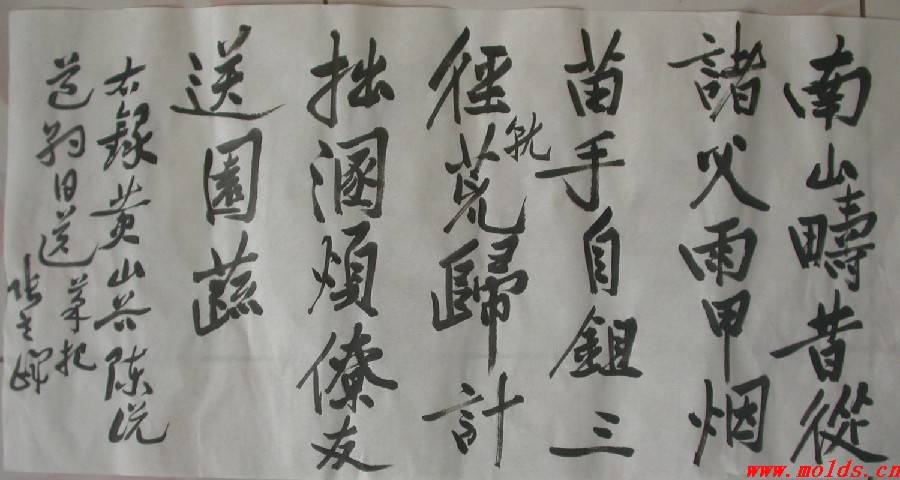 南山疇昔從
諸父雨甲烟
苗手自鉏三
徑就荒歸計
拙溷煩僚友
送園蔬
右錄黄山谷陳説
道約日送菜把
www.molds.cn